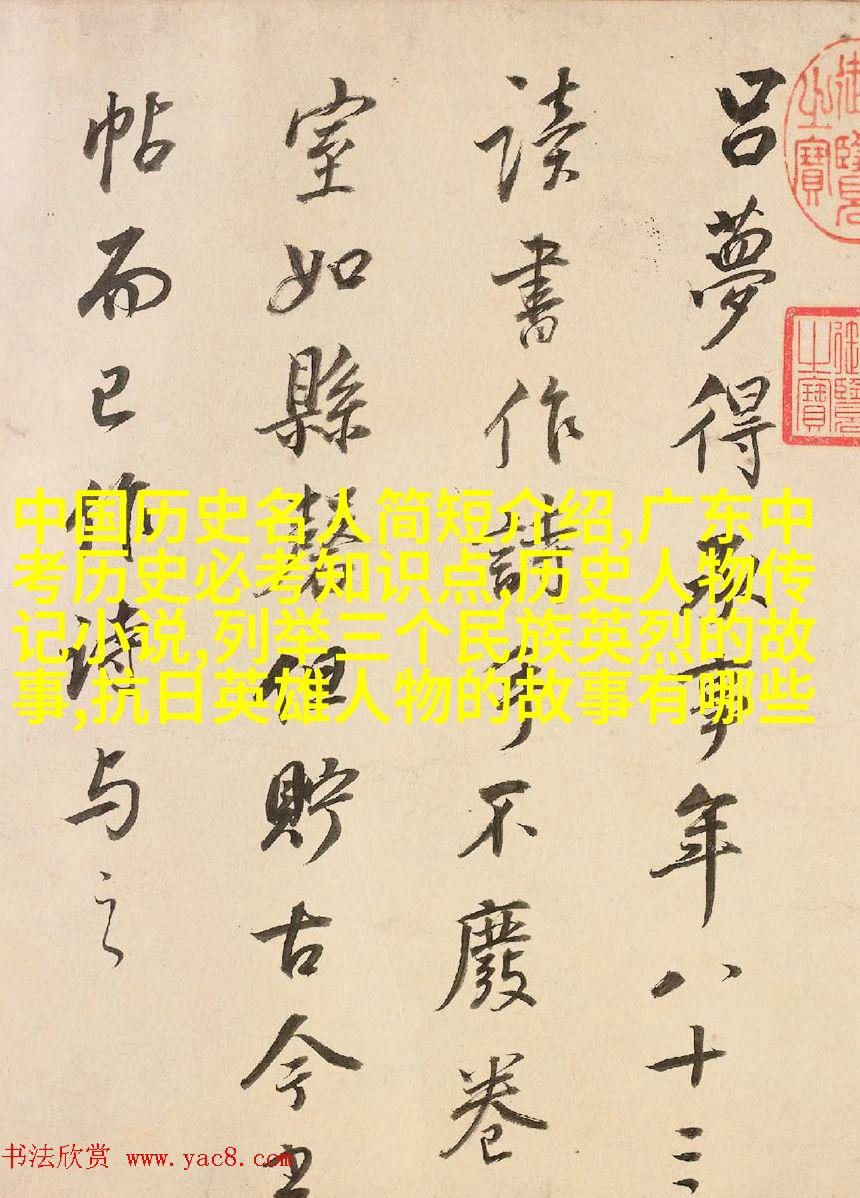 御覽之寶
御覽之寶
呂夢得承事年八十三
读書作詩手不廢卷
室如縣磬但貯古今
帖而已作诗与之
中国历史名人简短介绍,广东中
考历史必考知识点,历史人物传
记小说,列举三个民族英烈的故
事,抗日英雄人物的故事有哪些
书法欣赏 www.yac8.com